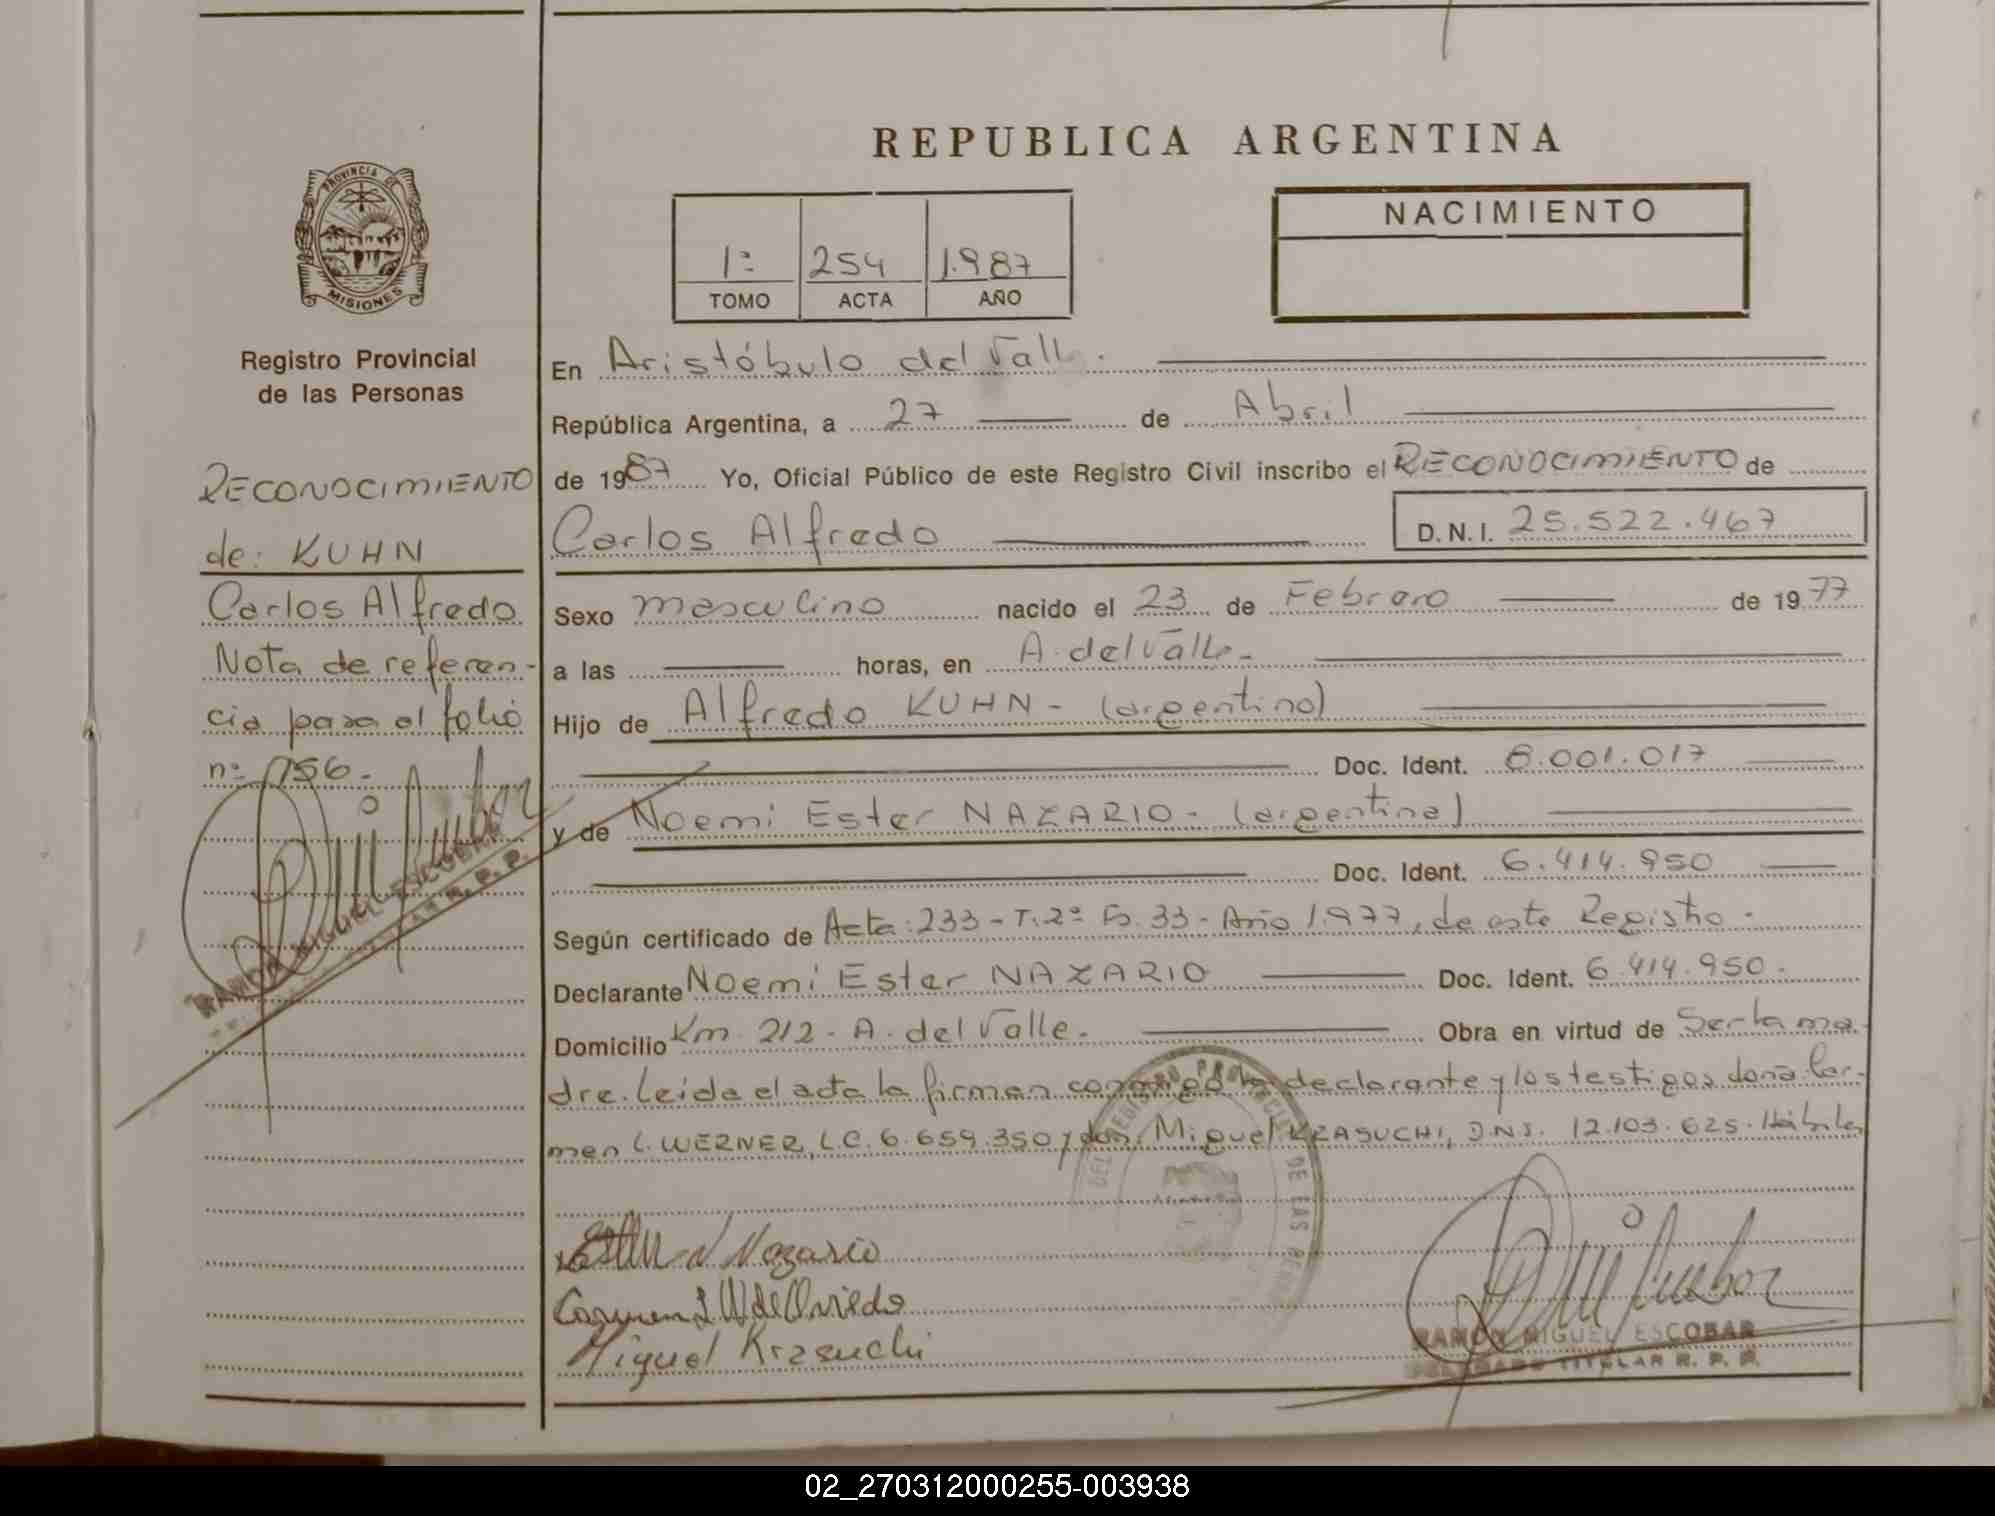 REPUBLICA ARGENTINA
PROVINCIA DE
MISIONES
Registro Provincial
de las Personas
1º 254 1.987
TOMO ACTA AÑO
NACIMIENTO
RECONOCIMIENTO
de: KUHN
Carlos Alfredo
Nota de referen-
cia para el folio
nº 156.
RAMON MIGUEL ESCOBAR
R. P. P.
En Aristóbulo del Valle.
República Argentina, a 27 de Abril
de 1987 Yo, Oficial Público de este Registro Civil inscribo el RECONOCIMIENTO de
Carlos Alfredo D.N.I. 25.522.467
Sexo masculino nacido el 23 de Febrero de 1977
a las horas, en A. del Valle.
Hijo de Alfredo KUHN - (argentino)
Doc. Ident. 8.001.017
y de Noemi Ester NAZARIO - (argentina)
Doc. Ident. 6.414.950
Según certificado de Acta: 233 - T. 2º Fº. 33 - Año 1.977, de este Registro.
Declarante Noemi Ester NAZARIO Doc. Ident. 6.414.950.
Domicilio Km. 212 - A. del Valle. Obra en virtud de Ser la ma-
dre. Leida el acta la firman conmigo la declarante y los testigos doña Car-
men L. WERNER, L.C. 6.659.350 y don Miguel KRASUCHI, D.N.I. 12.103.625. Hábiles
DEL REGISTRO PROVINCIAL DE LAS
Ester N Nazario
Carmen L W de Oviedo
Miguel Krasuchi
RAMON MIGUEL ESCOBAR
DELEGADO TITULAR R. P. P.
02_270312000255-003938